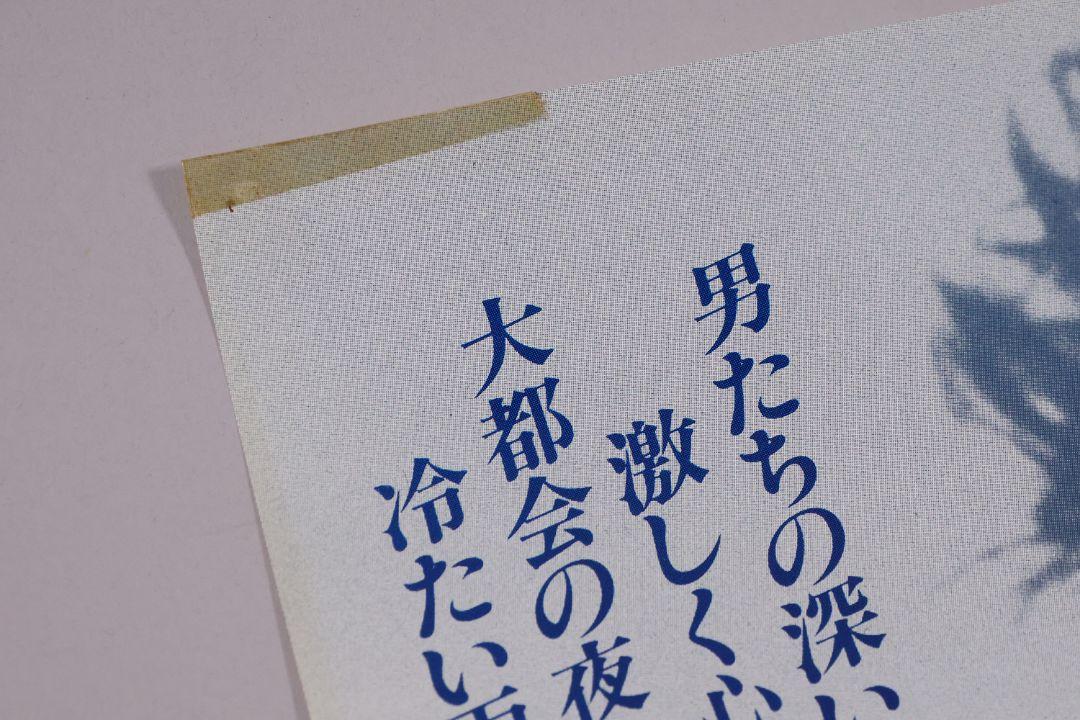 男たちの深い
激しく心
大都会の夜
冷たい雨